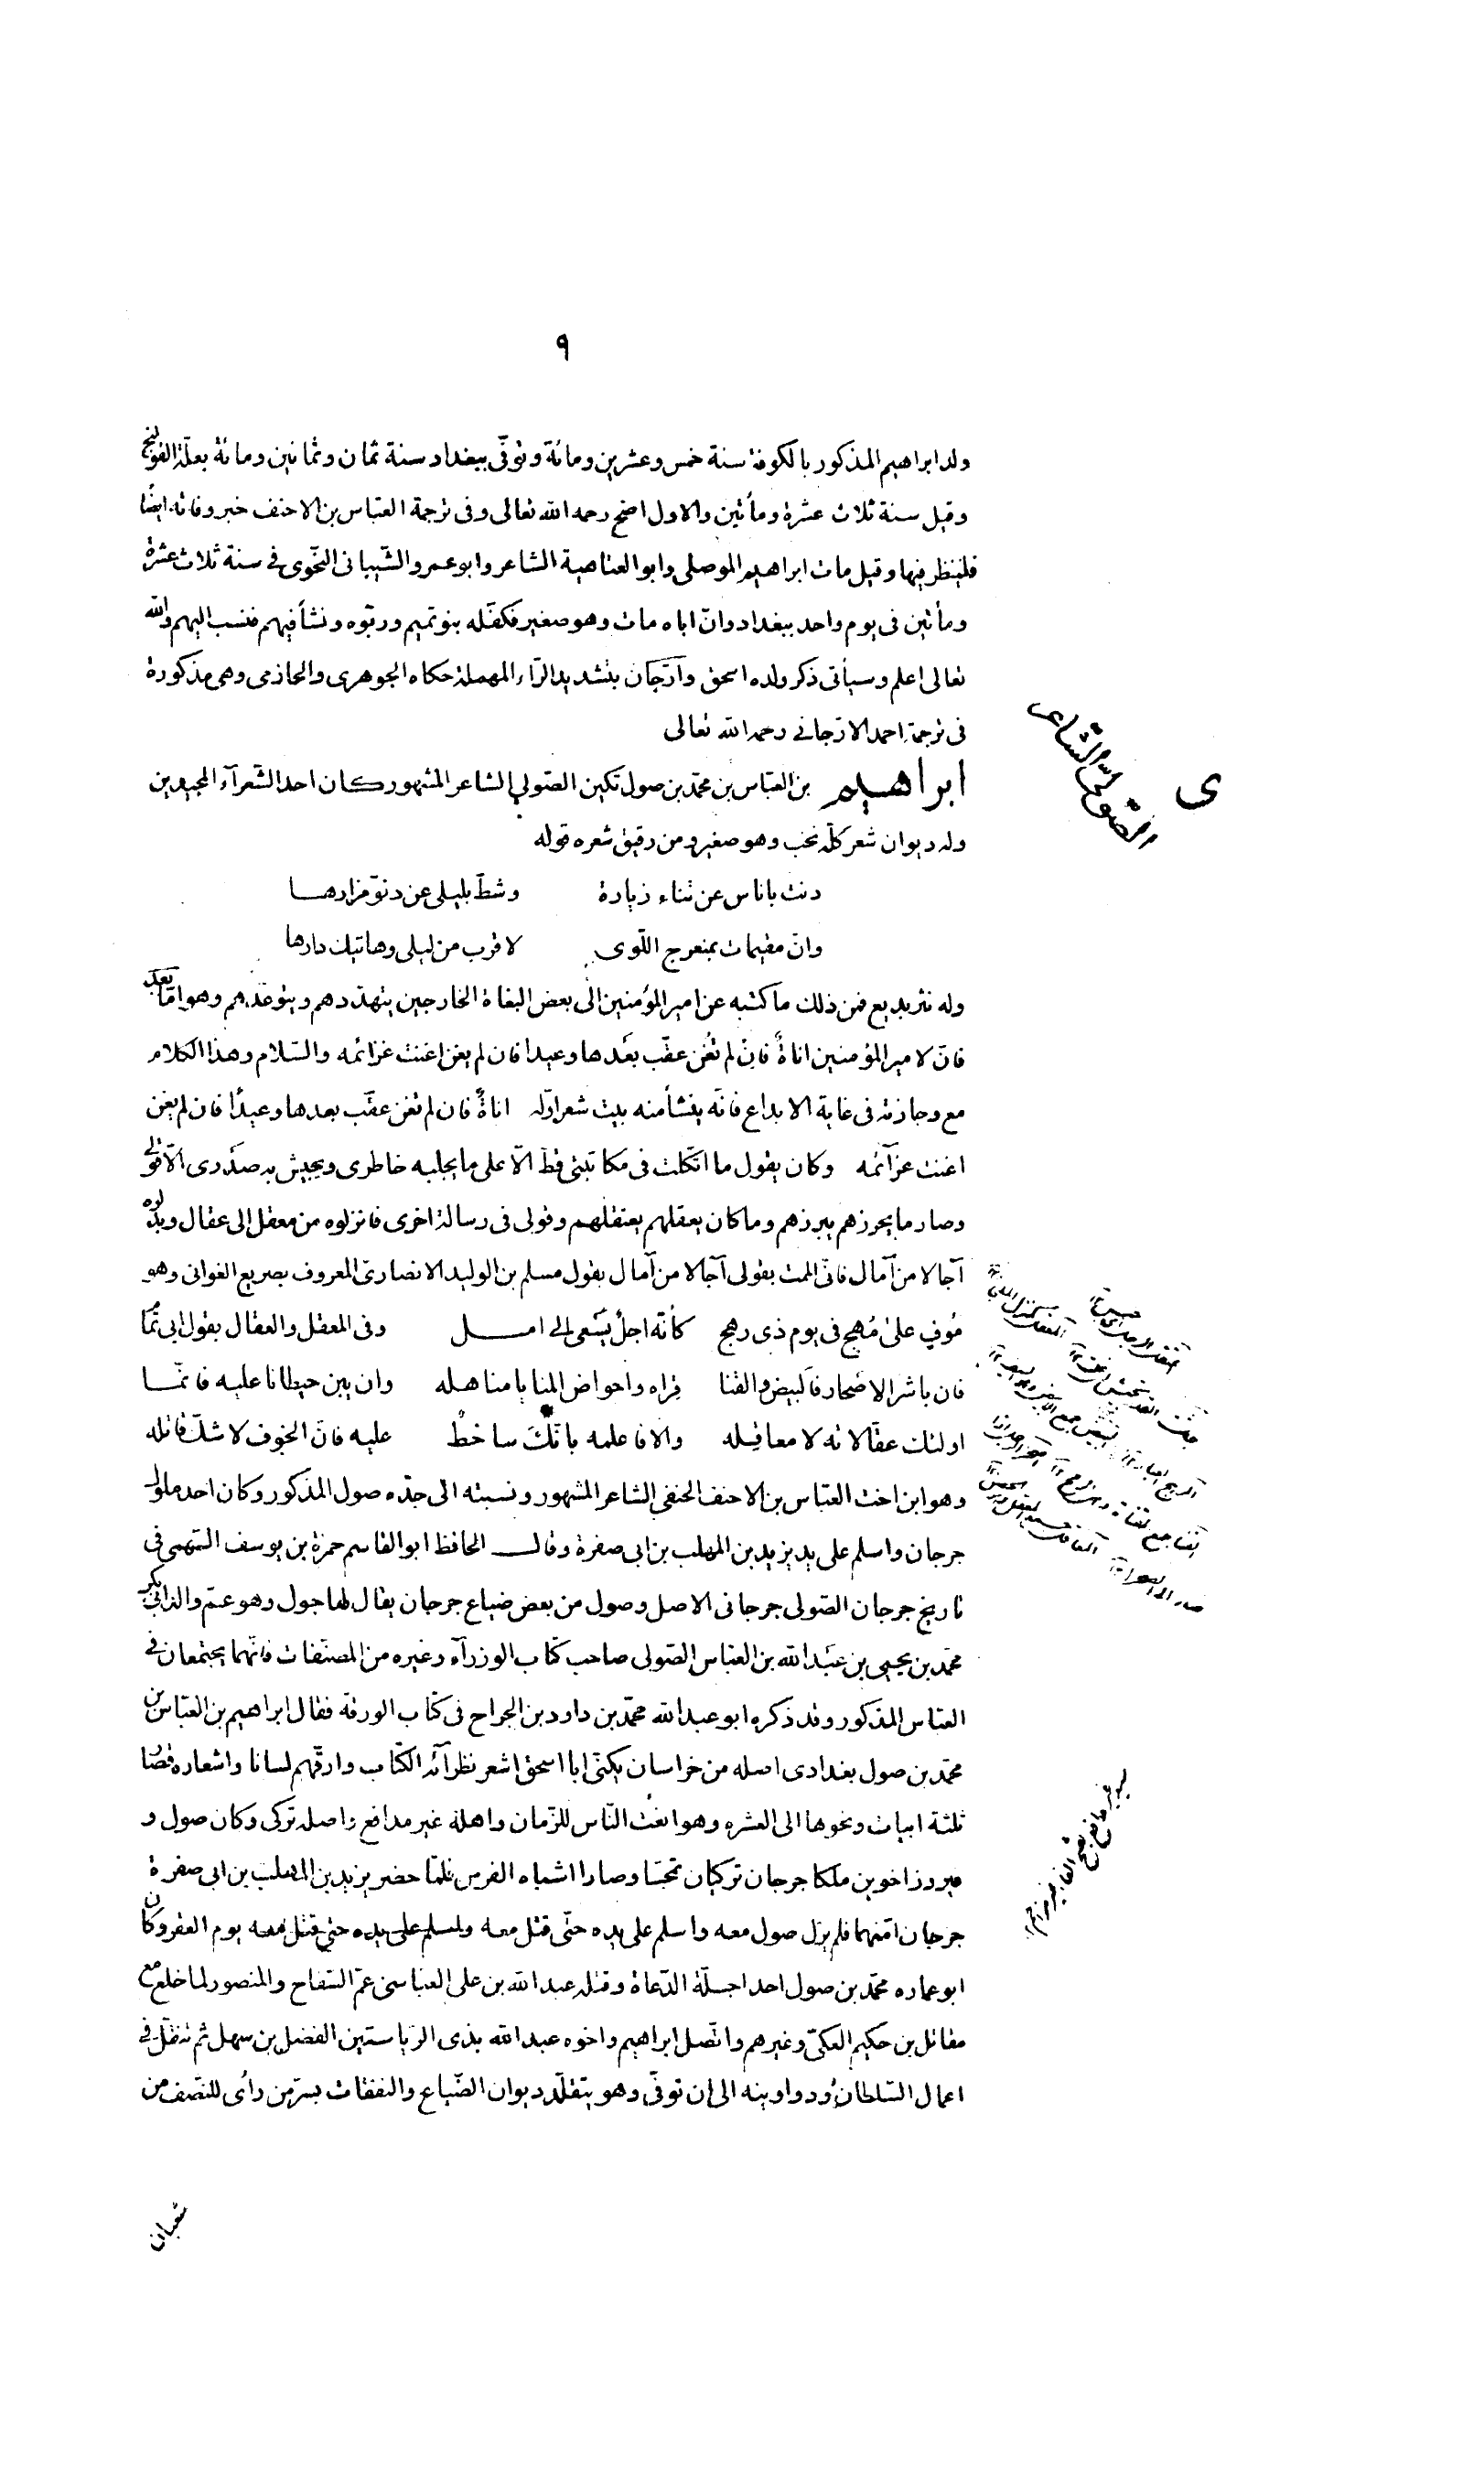 ٩
ولد ابراهيم المذكور بالكوفة سنة خمس وعشرين ومائة وتوفّى ببغداد سنة ثمان وثمانين ومائة بعلّة القولنج
وقيل سنة ثلاث عشرة ومأتين والاول اصح رحمه الله تعالى وفى ترجمة العبّاس بن الاحنف خبر وفاته ايضًا
فلينظر فيها وقيل مات ابراهيم الموصلى وابو العتاهية الشاعر وابو عمرو الشّيبانى النّحوى فى سنة ثلاث عشرة
ومأتين فى يوم واحد ببغداد وانّ اباه مات وهو صغير فكفّله بنو تميم وربّوه ونشأ فيهم فنسب اليهم والله
تعالى اعلم وسيأتى ذكر ولده اسحق وارّجان بتشديد الرّاء المهملة حكاه الجوهرى والحازمى وهى مذكورة
فى ترجمة احمد الارّجانى رحمه الله تعالى
الصّولىّ الشّاعر
ى
ابراهيم بن العبّاس بن محمّد بن صول تكين الصّولي الشاعر المشهور كان احد الشّعرآء المجيدين
وله ديوان شعر كلّه نخب وهو صغير ومن رقيق شعره قوله
دنت باناس عن تناء زيارة وشطّ بليلى عن دنوّ مزارها
وانّ مقيمات بمنعرج اللّوى لاقرب من ليلى وهاتيك دارها
وله نثر بديع فمن ذلك ما كتبه عن امير المؤمنين الى بعض البغاة الخارجين يتهدّدهم ويتوعّدهم وهو امّا بعد
فانّ لامير المؤمنين اناةً فان لم تغن عقّب بعدها وعيدا فان لم يغن اغنت عزائمه والسّلام وهذا الكلام
مع وجازته فى غاية الابداع فانّه ينشأ منه بيت شعر اوّله اناةً فان لم تغن عقّب بعدها وعيدًا فان لم يغن
اغنت عزآئمه وكان يقول ما اتّكلت فى مكاتبتى قطّ الّا على ما يجلبه خاطرى ويجيش به صدرى الّا قولى
وصار ما يحرزهم يبرزهم وما كان يعقلهم يعتقلهم وقولى فى رسالة اخرى فانزلوه من معقل الى عقال وبدّلوه
آجالا من آمال فانّى الممت بقولى آجالا من آمال بقول مسلم بن الوليد الانصارىّ المعروف بصريع الغوانى وهو
مُوفٍ على مُهج فى يوم ذى رهج كأنّه اجلٌ يسعى الى امــل وفى المعقل والعقال بقول ابى تمّام
فان باشر الاصحار فالبيض والقنا قراه واحواض المنايا مناهله وان يبن حيطانا عليه فانّمـا
اولئك عقّالاته لا معاقله والا فاعلمه بانّك ساخطٌ عليه فانّ الخوف لا شكّ قاتله
وهو ابن اخت العبّاس بن الاحنف الحنفى الشاعر المشهور ونسبته الى جدّه صول المذكور وكان احد ملوك
جرجان واسلم على يد يزيد بن المهلب بن ابى صفرة وقال الحافظ ابو القاسم حمزة بن يوسف السّهمى فى
تاريخ جرجان الصّولى جرجانى الاصل وصول من بعض ضياع جرجان يقال لها جول وهو عمّ والد ابى بكر
محمّد بن يحيى بن عبد الله بن العبّاس الصّولى صاحب كتاب الوزرآء وغيره من المصنّفات فانّهما يجتمعان فى
العبّاس المذكور وقد ذكره ابو عبد الله محمّد بن داود بن الجراح فى كتاب الورقة فقال ابراهيم بن العبّاس بن
محمّد بن صول بغدادى اصله من خراسان يكنّى ابا اسحق اشعر نظرآئه الكتّاب وارقّهم لسانا واشعاره قصار
ثلثة ابيات ونحوها الى العشرة وهو انعت النّاس للزّمان واهله غير مدافع واصله تركى وكان صول و
فيروز اخوين ملكا جرجان تركيان تمجّسا وصارا اشباه الفرس فلمّا حضر يزيد بن المهلب بن ابى صفرة
جرجان امّنهما فلم يزل صول معه واسلم على يده حتّى قتل معه واسلم على يده حتى قتل معه يوم العقر وكان
ابو عماره محمّد بن صول احد اجلّة الدّعاة وقتله عبد الله بن على العبّاسى عمّ السّفاح والمنصور لما خلع مع
مقاتل بن حكيم العكىّ وغيرهم واتّصل ابراهيم واخوه عبد الله بذى الرّياستين الفضل بن سهل ثم تنقّل فى
اعمال السّلطان ودواوينه الى ان توفّى وهو يتقلّد ديوان الضّياع والنفقات بسرّ من رأى للنّصف من
شعبان